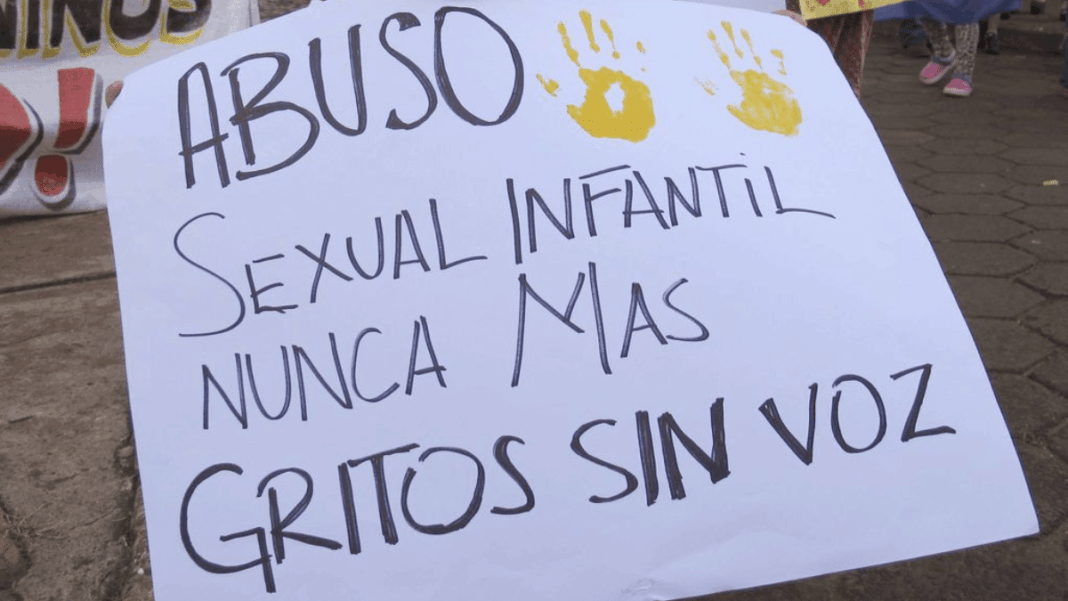 NIÑOS
ABUSO
SEXUAL INFANTIL
NUNCA MAS
GRITOS SIN VOZ